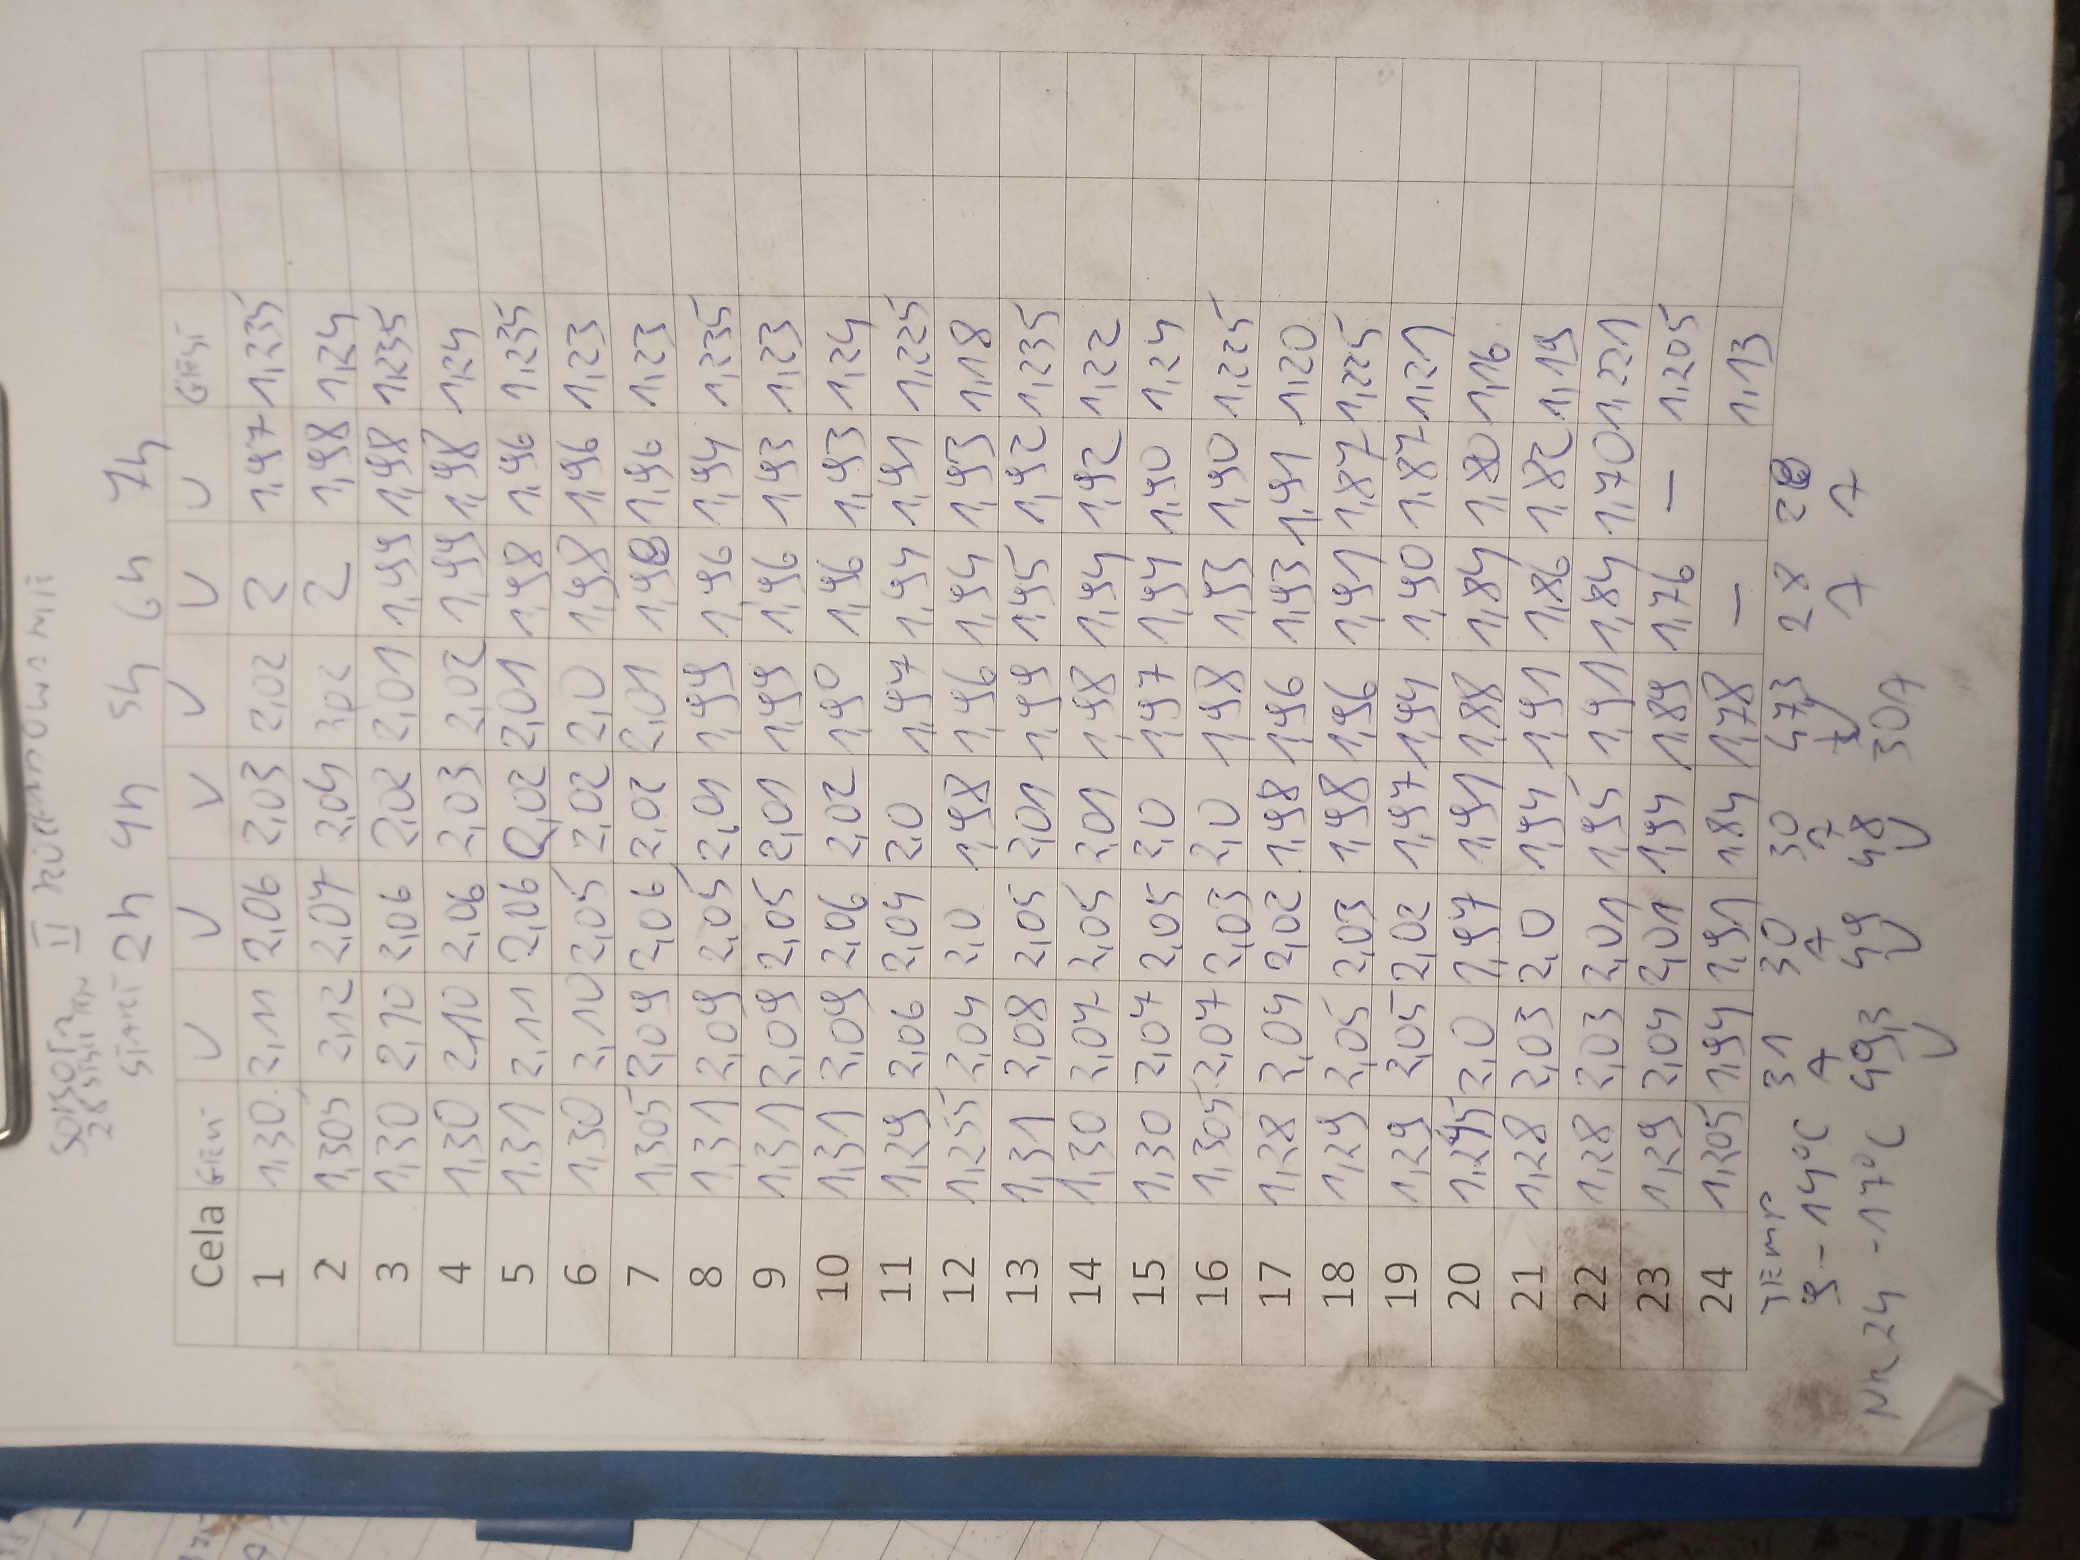 II
START 2h 4h 5h 6h 7h
Cela GĘST U U V U U U GĘST
1 1,30 2,11 2,06 2,03 2,02 2 1,97 1,235
2 1,305 2,12 2,07 2,04 3,02 2 1,98 1,24
3 1,30 2,10 2,06 2,02 2,01 1,99 1,98 1,235
4 1,30 2,10 2,06 2,03 2,02 1,99 1,98 1,24
5 1,31 2,11 2,06 2,02 2,01 1,98 1,96 1,235
6 1,30 2,10 2,05 2,02 2,0 1,98 1,96 1,23
7 1,305 2,09 2,06 2,02 2,01 1,98 1,96 1,23
8 1,31 2,09 2,05 2,01 1,99 1,96 1,94 1,235
9 1,31 2,09 2,05 2,01 1,99 1,96 1,93 1,23
10 1,31 2,09 2,06 2,02 1,90 1,96 1,93 1,24
11 1,29 2,06 2,04 2,0 1,97 1,94 1,91 1,225
12 1,255 2,04 2,0 1,98 1,96 1,94 1,93 1,18
13 1,31 2,08 2,05 2,01 1,99 1,95 1,92 1,235
14 1,30 2,07 2,05 2,01 1,98 1,94 1,92 1,22
15 1,30 2,07 2,05 2,0 1,97 1,94 1,90 1,24
16 1,305 2,07 2,03 2,0 1,98 1,93 1,90 1,225
17 1,28 2,04 2,02 1,98 1,96 1,93 1,91 1,20
18 1,29 2,05 2,03 1,98 1,96 1,91 1,87 1,225
19 1,29 2,05 2,02 1,97 1,94 1,90 1,87 1,21
20 1,245 2,0 1,97 1,91 1,88 1,84 1,80 1,16
21 1,28 2,03 2,0 1,94 1,91 1,86 1,82 1,19
22 1,28 2,03 2,01 1,95 1,91 1,84 1,70 1,221
23 1,29 2,04 2,01 1,94 1,89 1,76 — 1,205
24 1,205 1,94 1,91 1,84 1,78 — 1,13
TEMP 31 30 30 47,3 28 28
9 - 14°C A A A V A A
Nr 24 - 17°C 49,3 49 48 30A
V V V